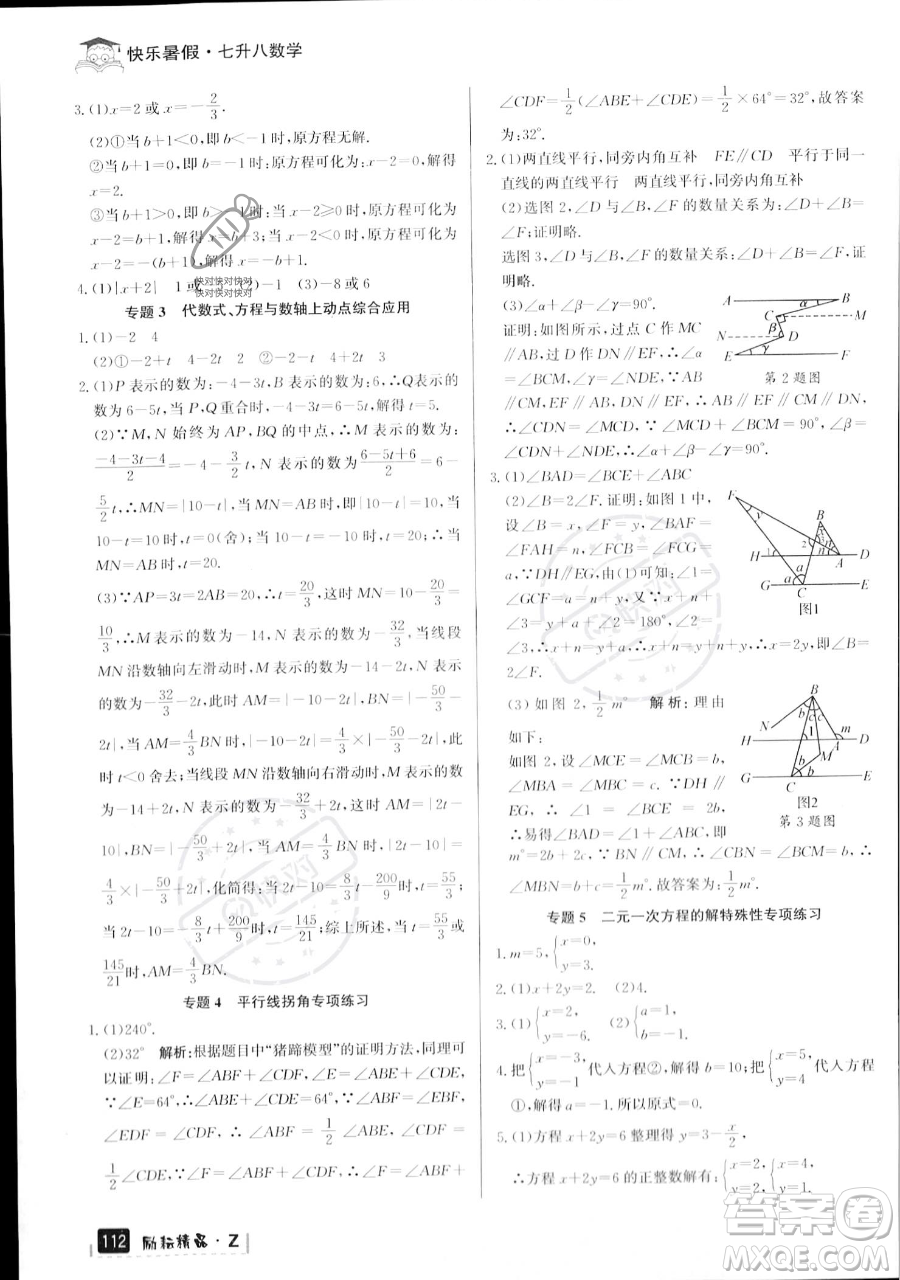 快乐暑假·七升八数学
3.(1)x=2或x=-2/3.
(2)①当b+1<0,即b<-1时,原方程无解.
②当b+1=0,即b=-1时;原方程可化为,解得
x=2.
③当b+1>0,即b>-1时;当x-2≥0,原方程可化为
x-2=b+1,解得x=b+3;当x-2<0,原方程可化为
x-2=-(b+1),解得x=-b+1.
4.(1)|x+2| 1或 (2)-1 (3)-8或6
专题3 代数式、方程与数轴上动点综合应用
1.(1)-2 4
(2)①-2+t 4-2t ②-2+t 4+2t
2.(1)P表示的数为:-4-3t,B表示的数为:6,∴Q表示的
数为6-5t,当P,Q重合时,-4-3t=6-5t,解得t=5.
(2)∵M,N始终为AP,BQ的中点,∴M表示的数为:
(-4-3t-4)/2=-4-3/2t,N表示的数为(6-5t+6)/2=6-
5/2t,∴MN=|10-t|,当MN=AB时,即|10-t|=10,当
10-t=10时,t=0(舍);当10-t=-10时,t=20,∴当
MN=AB时,t=20.
(3)∵AP=3t=20,∴t=20/3,这时MN=|10-20/3|=
10/3,∴M表示的数为-14,N表示的数为-32/3,当线段
MN沿数轴向左滑动时,M表示的数为-14-2t,N表示
的数为-32/3-2t,此时AM=|-10-2t|,BN=|-50/3-
2t|,当AM=4/3BN时,|-10-2t|=4/3×|-50/3-2t|,此
时t<0舍去;当线段MN沿数轴向右滑动时,M表示的数
为-14+2t,N表示的数为-32/3+2t,此时AM=|-10+
2t|,BN=|-50/3+2t|,当AM=4/3BN时,|2t-10|=
4/3×|2t-50/3|,化简得:当2t-10=8/3t-200/9时,t=55/3;
当2t-10=-8/3t+200/9时,t=145/21;综上所述,当t=55/3或
145/21时,AM=4/3BN.
专题4 平行线拐角专项练习
1.(1)240°.
(2)32° 解析:根据题目中“猪蹄模型”的证明方法,同理可
以证明:∠F=∠ABF+∠CDF,∠E=∠ABE+∠CDE,
∵∠E=64°,∴∠ABE+∠CDE=64°,∵∠EBF=∠ABF,
∠EDF=∠CDF,∴∠ABF=1/2∠ABE,∠CDF=
1/2∠CDE,∵∠F=∠ABF+∠CDF,∴∠F=∠ABF+
∠CDF=1/2(∠ABE+∠CDE)=1/2×64°=32°,故答案
为:32°.
2.(1)两直线平行,同旁内角互补 FE∥CD 平行于同一
直线的两直线平行 两直线平行,同旁内角互补
(2)选图2,∠D+∠A与∠F的数量关系为:∠D+∠A=
∠F;证明略.
选图3,∠D+∠A与∠F的数量关系为:∠D+∠F=∠A;
证明略.
(3)∠α+∠β-∠γ=90°.
证明:如图所示,过点C作MC
∥AB,过点D作DN∥EF,∴∠α
=∠BCM,∠γ=∠NDE,∵AB
∥EF,∴AB∥CM∥DN∥EF,∴∠CDN=∠MCD,
∴∠CDN=∠MCD=∠BCD-∠BCM=90°-∠α,∵∠β
=∠CDN+∠NDE=90°-∠α+∠γ,∴∠α+∠β-∠γ=90°.
第2题图
3.(1)∠BAD=∠BCE+∠ABC
(2)∠B=2∠F.证明:如图1中,
设∠B=x,∠F=y,∠BAF=
∠FAH=n,∠FCB=∠FCG=
a,由(1)可知:∠1=
∠GCF=y+a,又∵∠2=
3n,y+∠1+∠2=180°,∴x+a+n
=2y+a+n,∴x+y=3y,∴x=2y,即∠B=
2∠F.
图1
(3)如图2,1/2m° 解析:理由
如下:
如图2,设∠MCE=∠MCB=b,
∠MBA=∠MBC=c.∵DH∥
EG,∴∠1=∠BCE=2b,
∴易得∠DAB=∠1+∠ABC,即
m°=2b+2c,∵BN∥CM,∴∠NBC=∠BCM=b,
∴∠MBN=b+c=1/2m°.故答案为:1/2m°.
图2
第3题图
专题5 二元一次方程的解特殊性专项练习
1.m=5,{x=0, y=3. {x=5, y=0.
2.(1)x+2y=6. (2)4.
3.(1){x=2, y=-6. (2){a=1, b=-1.
4.把{x=3, y=-1代入方程②,解得b=10;把{x=5, y=4代入方程
①,解得a=-1.所以原式=0.
5.(1)方程x+2y=6整理得y=3-x/2,
∴方程x+2y=6的正整数解有{x=2, y=2.{x=4, y=1.
112 励耘精品·Z